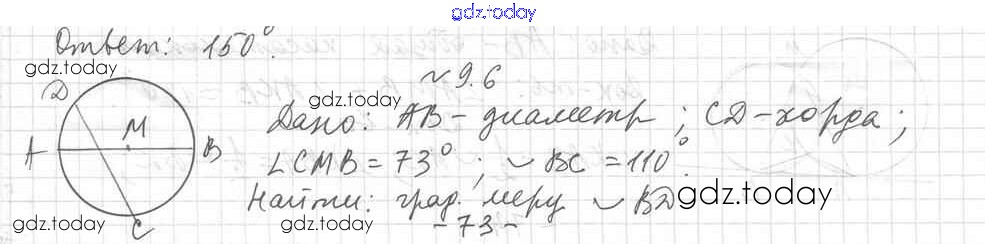 gdz.today
Ответ: 150°.
gdz.today
№ 9.6
gdz.today
Д
M
A
B
C
Дано: AB - диаметр; CД - хорда;
∠CMB = 73°; ◡ BC = 110°.
gdz.today
Найти: град. меру ◡ BД
gdz.today
gdz.today
- 73 -